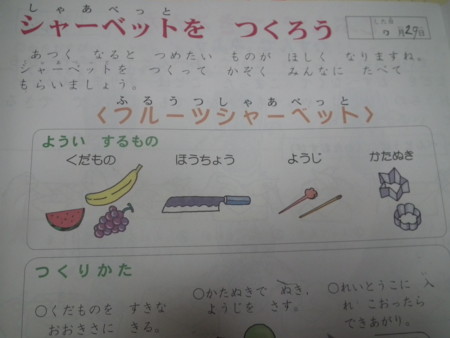 しゃあべっと
シャーベットを つくろう
した日
月29日
あつく なると つめたい ものが ほしく なりますね。
シャーベットを つくって かぞく みんなに たべて
もらいましょう。
ふるうつしゃあべっと
〈フルーツシャーベット〉
ようい するもの
くだもの ほうちょう ようじ かたぬき
つくりかた
○くだものを すきな
おおきさに きる。
○かたぬきで ぬき、
ようじを さす。
○れいとうこに 入
れ こおったら
できあがり。